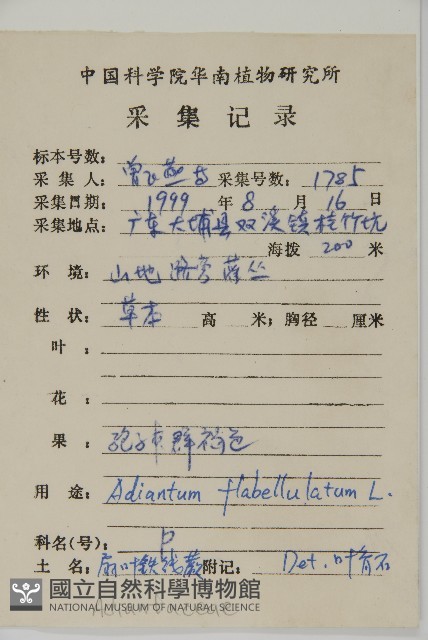 中国科学院华南植物研究所
采集记录
标本号数：
采集人：曾飞燕 采集号数：1785
采集日期：1999年8月16日
采集地点：广东大埔县双溪镇桂竹坑
海拨 200 米
环境：山地路旁 丛
性状：草本 高 米；胸径 厘米
叶：
花：
果：孢子囊群褐色
用途：Adiantum flabellulatum L.
科名(号)：P
土名：扇叶铁线蕨 附记：Det. 叶育石
國立自然科學博物館
NATIONAL MUSEUM OF NATURAL SCIENCE